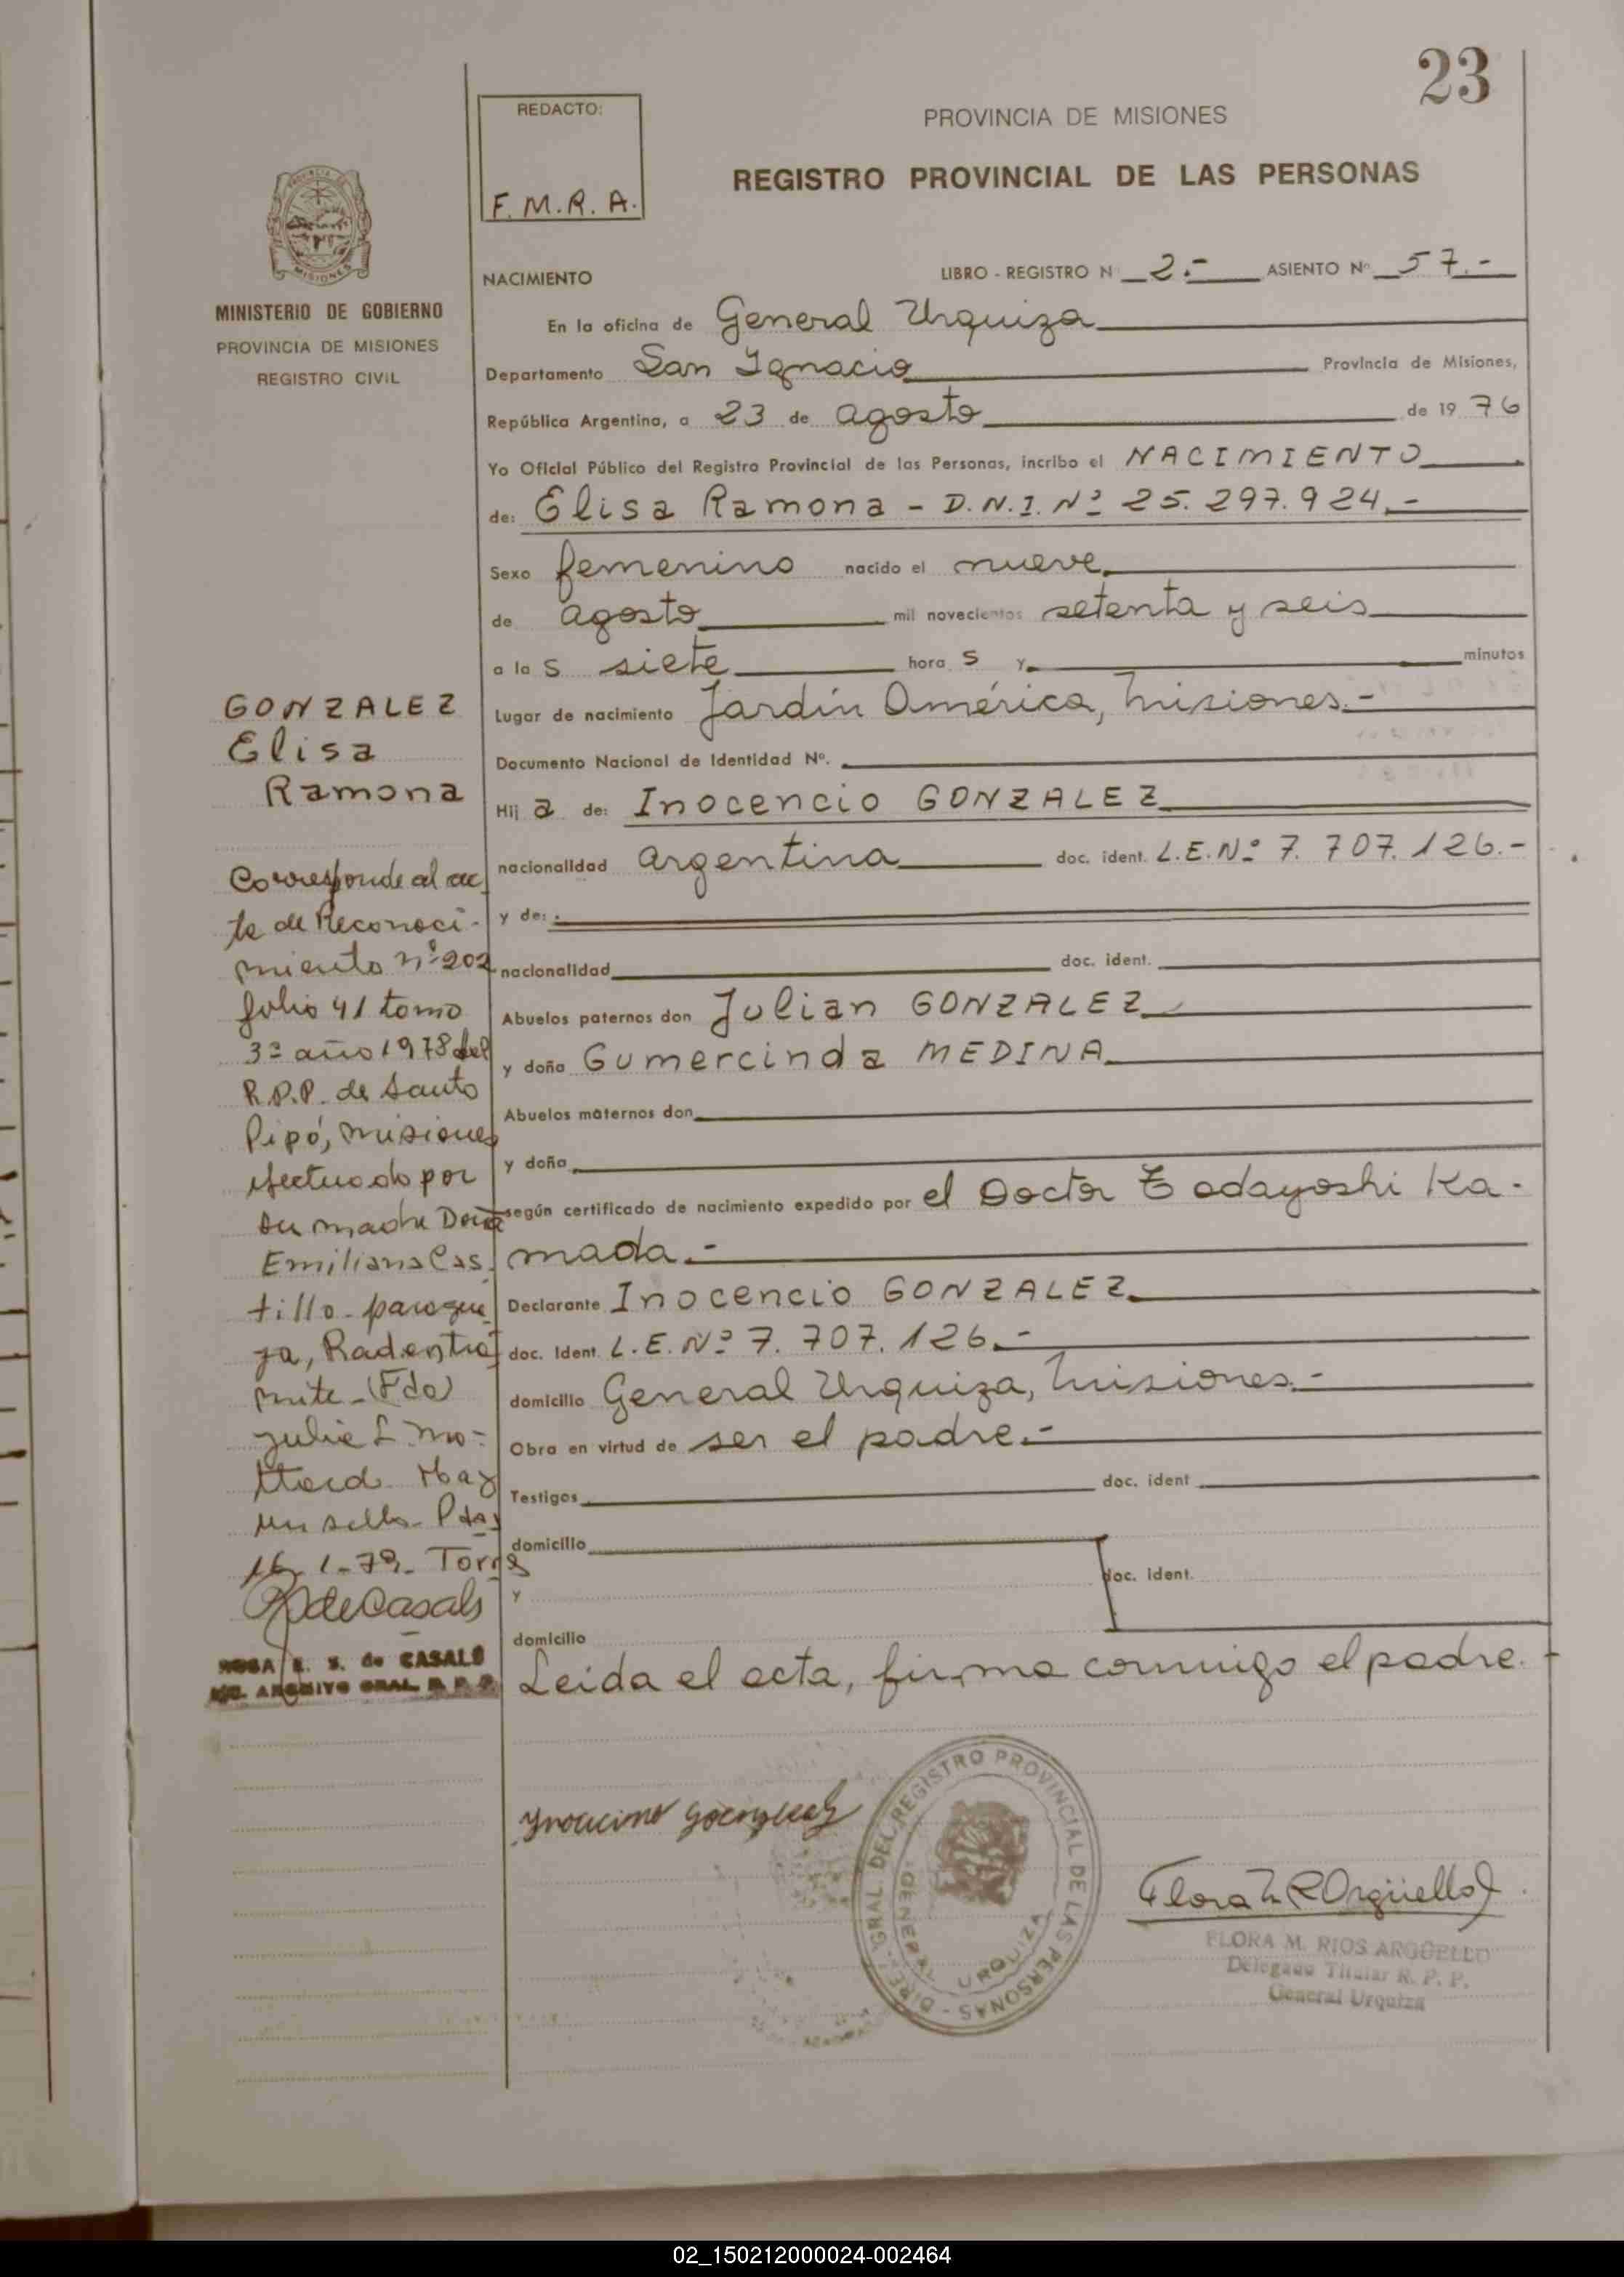 23
REDACTO:
F. M. R. A.
PROVINCIA DE MISIONES
REGISTRO PROVINCIAL DE LAS PERSONAS
MISIONES
MINISTERIO DE GOBIERNO
PROVINCIA DE MISIONES
REGISTRO CIVIL
NACIMIENTO
LIBRO - REGISTRO N 2.- ASIENTO Nº 57.-
En la oficina de General Urquiza
Departamento San Ignacio Provincia de Misiones,
República Argentina, a 23 de agosto de 1976
Yo Oficial Público del Registro Provincial de las Personas, incribo el NACIMIENTO
de: Elisa Ramona - D.N.I. Nº 25.297.924.-
Sexo femenino nacido el nueve
de agosto mil novecientos setenta y seis
a las siete horas y minutos
Lugar de nacimiento Jardín América, Misiones.-
Documento Nacional de Identidad Nº.
Hija de: Inocencio GONZALEZ
nacionalidad argentina doc. ident. L.E.Nº 7.707.126.-
y de:
nacionalidad doc. ident.
Abuelos paternos don Julian GONZALEZ
y doña Gumercinda MEDINA
Abuelos maternos don
y doña
según certificado de nacimiento expedido por el Doctor Tadayoshi Ka-
mada.-
Declarante Inocencio GONZALEZ
doc. Ident. L.E.Nº 7.707.126.-
domicilio General Urquiza, Misiones.-
Obra en virtud de ser el padre.-
Testigos doc. ident
domicilio
y doc. ident.
domicilio
Leida el acta, firma conmigo el padre.-
GONZALEZ
Elisa
Ramona
Corresponde al ac
ta de Reconoci-
miento nº 202
folio 41 tomo
3º año 1978 del
R.P.P. de Santo
Pipó, Misiones
efectuado por
su madre Doña
Emiliana Cas
tillo - paragua
ya, Rad. en trá
mite - (Fdo)
Julia L. Mo-
Hay
un sello - Pdas
16-1-79- Torres
R de Casals
ROSA E. S. de CASALS
ARCHIVO GRAL. R. P. P.
DIREC. GRAL. DEL REGISTRO PROVINCIAL DE LAS PERSONAS -
GENERAL URQUIZA
Flora M R Argüello
FLORA M. RIOS ARGÜELLO
Delegado Titular R. P. P.
General Urquiza
02_150212000024-002464